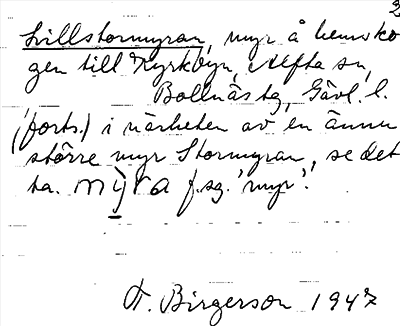 2
Lillstormyran, myr å hemsko
gen till Kyrkbyn, Alfta sn,
Bollnäs tg, Gävl. l.
(forts.) i närheten av en ännu
större myr Stormyran, se det
ta. mỳra f.sg. 'myr'.
A. Birgerson 1947